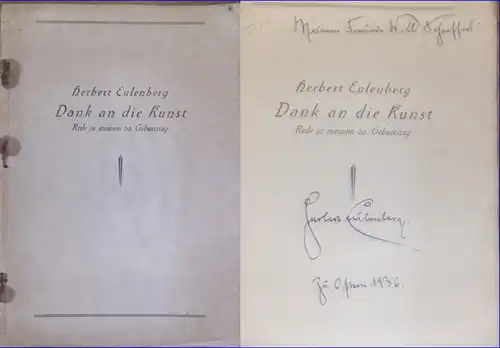 Herbert Eulenberg
Dank an die Kunst
Rede zu meinem 60. Geburtstag
Meinem Freunde Will
Herbert Eulenberg
Dank an die Kunst
Rede zu meinem 60. Geburtstag
Herbert Eulenberg.
Zu Ostern 1936.